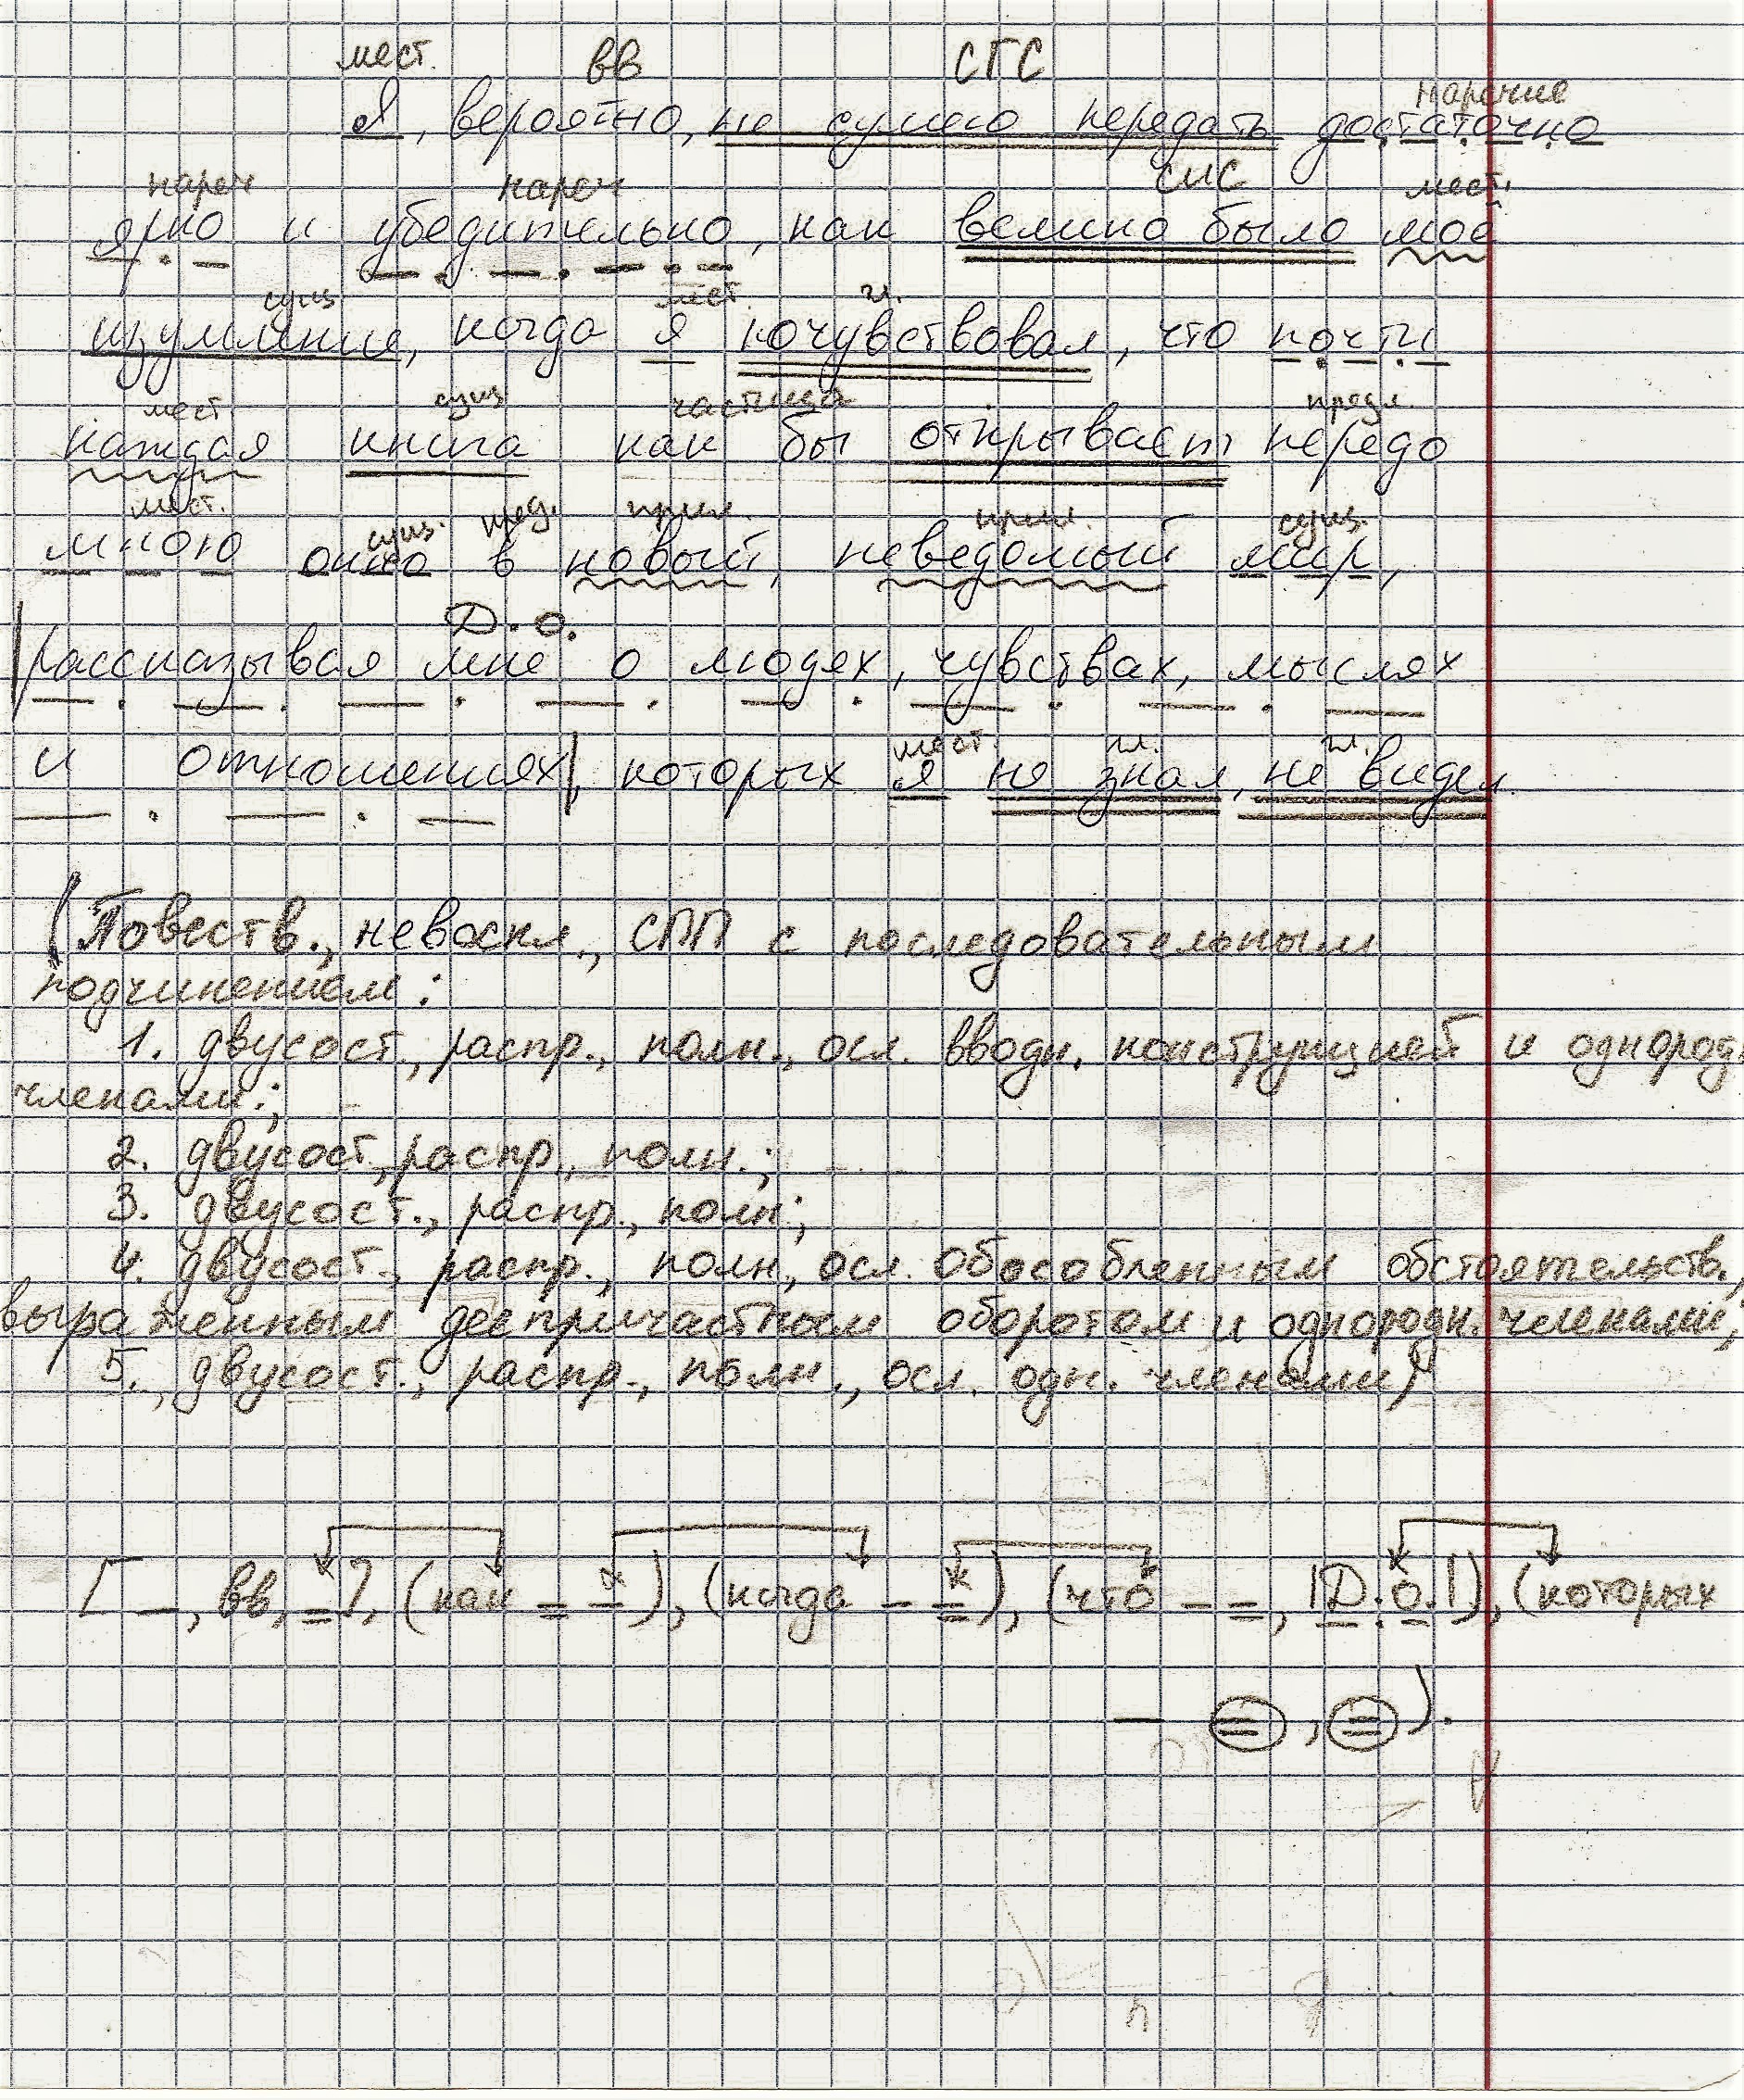 мест. вв СГС наречие
Я, вероятно, не сумею передать достаточно
нареч нареч СИС мест.
ярко и убедительно, как велико было моё
сущ мест. гл.
изумление, когда я почувствовал, что почти
мест. сущ частица предл.
каждая книга как бы открывает передо
мест. сущ. пред. прил. прил. сущ.
мною окно в новый, неведомый мир,
Д.о.
|рассказывая мне о людях, чувствах, мыслях
мест. гл. гл.
и отношениях|, которых я не знал, не видел.
(Повеств., невоскл., СПП с последовательным
подчинением:
1. двусост., распр., полн., осл. вводн. конструкцией и однородн
членами.;
2. двусост., распр., полн.;
3. двусост., распр., полн;
4. двусост., распр., полн, осл. обособленным обстоятельств.,
выраженным деепричастным оборотом и однородн. членами;
5., двусост., распр., полн., осл. одн. членами)
[ —, вв, = ], (как = —), (когда – =), (что – =, |Д.о.|), (которых
– =, =).